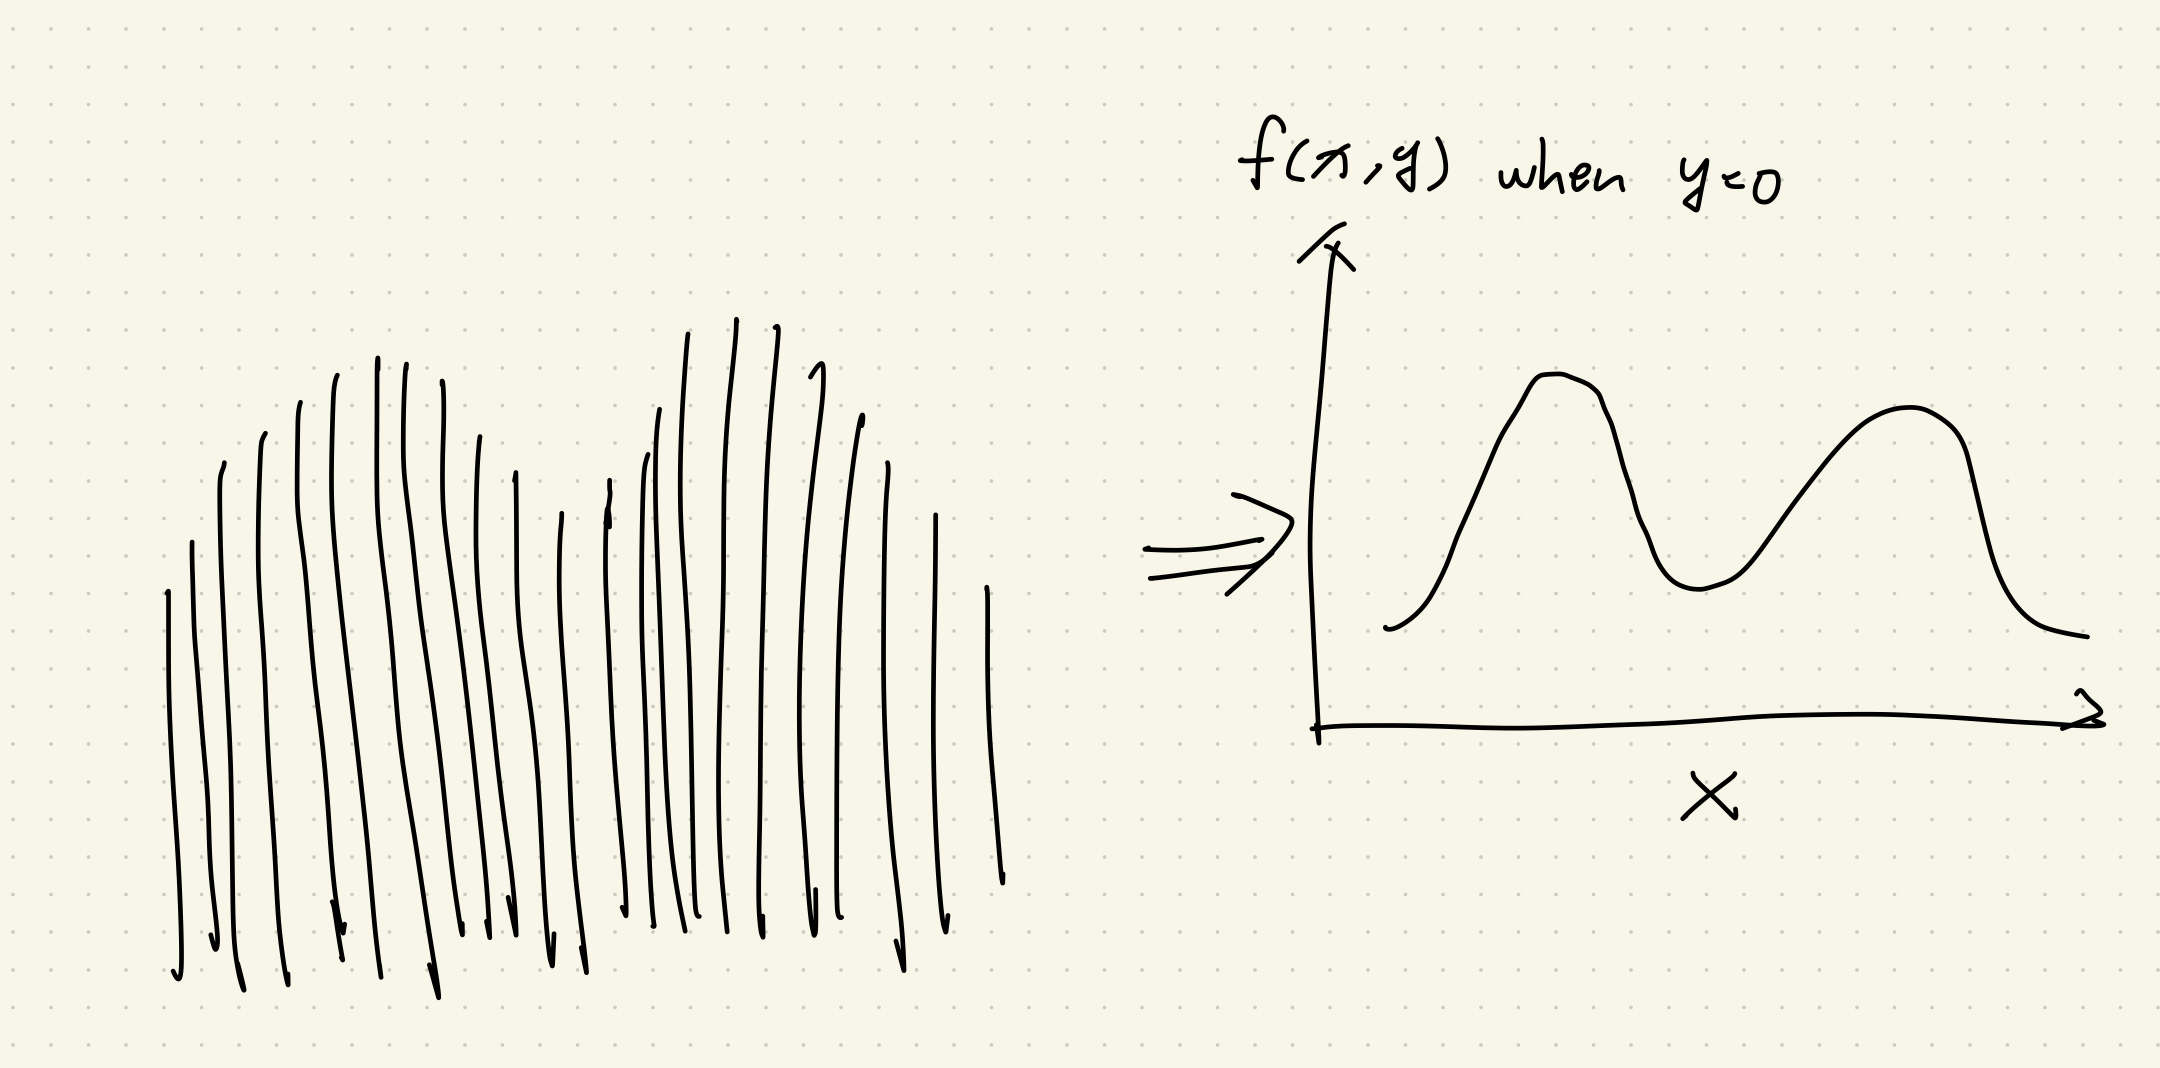 f(x,y) when y=0
x